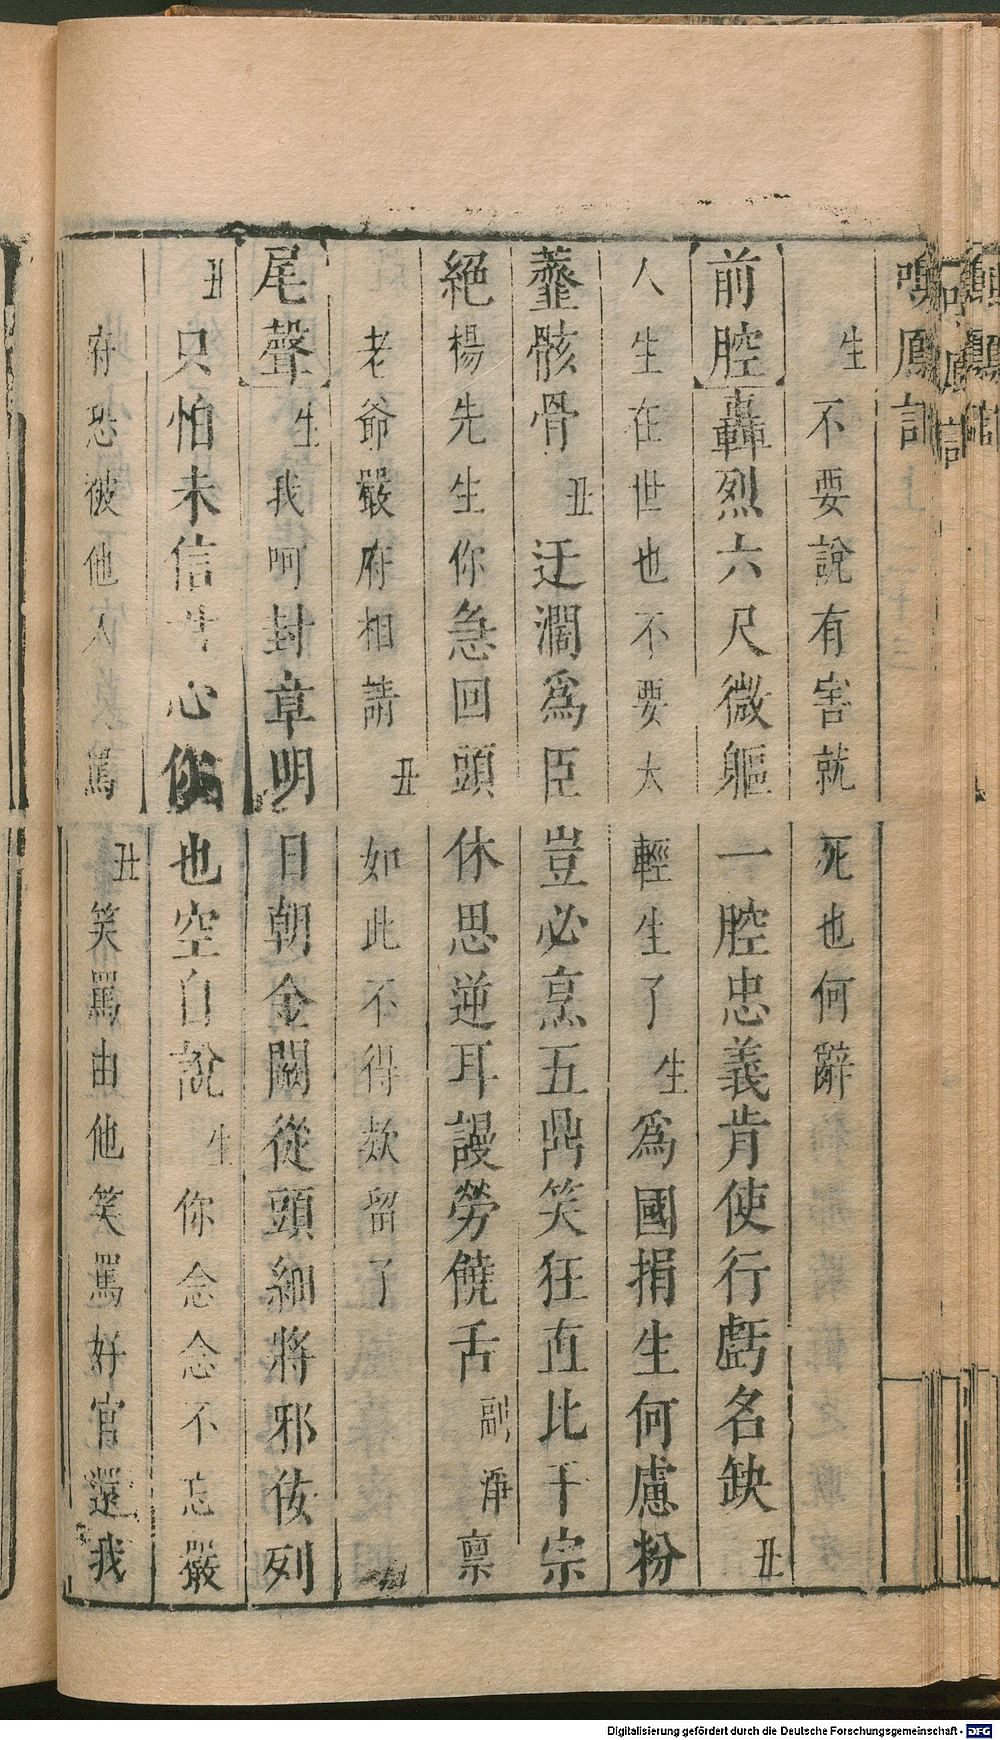 鳴鳳記
生不要說有害就死也何辭
前腔轟烈六尺微軀一腔忠義肯使行虧名缺丑
人生在世也不要太輕生了生爲國捐生何慮粉
虀骸骨丑迂濶爲臣豈必烹五鼎笑狂直比干宗
絕楊先生你急回頭休思逆耳謾勞饒舌副淨禀
老爺嚴府相請丑如此不得欵留了
尾聲生我呵封章明日朝金闕從頭細將邪佞列
丑只怕未信心你也空自說生你念念不忘嚴
府恐被他人笑罵丑笑罵由他笑罵好官還我
Digitalisierung gefördert durch die Deutsche Forschungsgemeinschaft - DFG